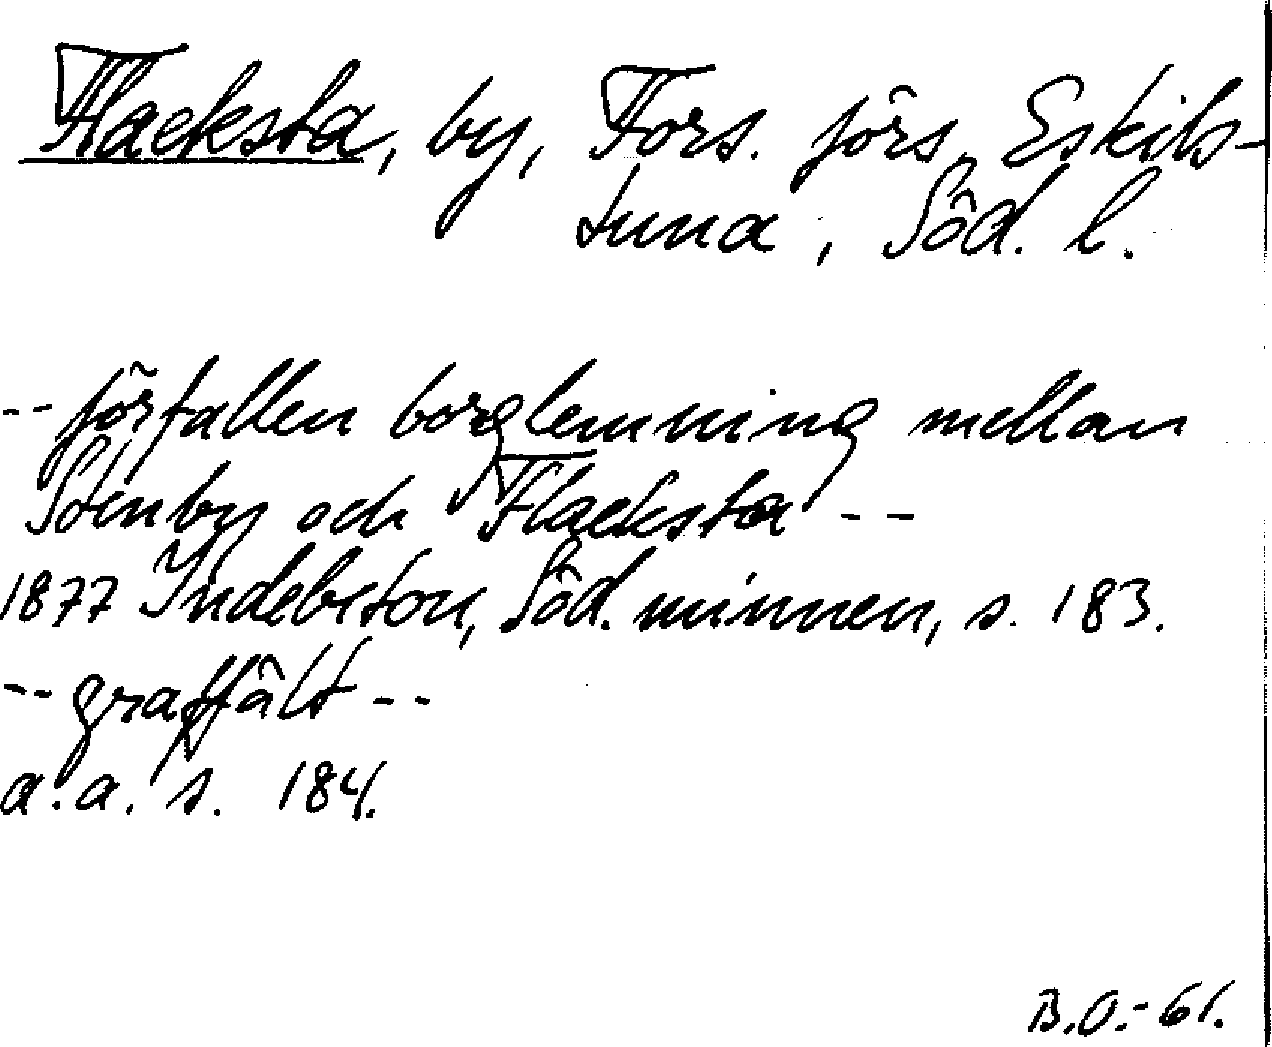 Flacksta, by, Fors. förs., Eskils-
tuna, Söd. l.
-- förfallen borglemning mellan
Stenby och Flacksta --
1877 Indebetou, Söd. minnen, s. 183.
-- graffält --
a.a. s. 184.
B.O.-61.